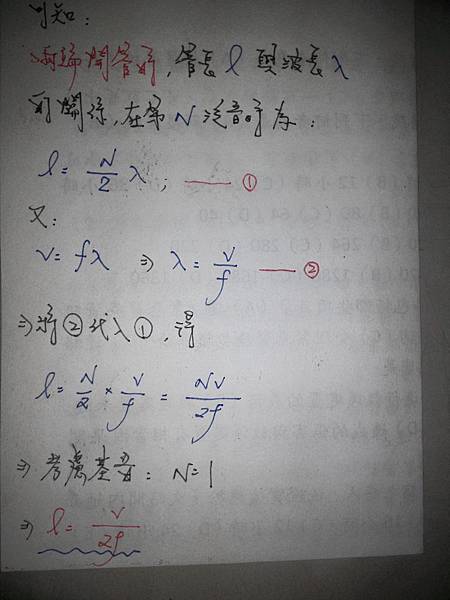 可知：
兩端開管時，管長 l 與波長 λ
的關係，在第 N 泛音時為：
l = N/2 λ； —— ①
又：
v = fλ ⇒ λ = v/f —— ②
⇒ 將②代入①，得
l = N/2 × v/f = Nv/2f
⇒ 考慮基音：N=1
⇒ l = v/2f